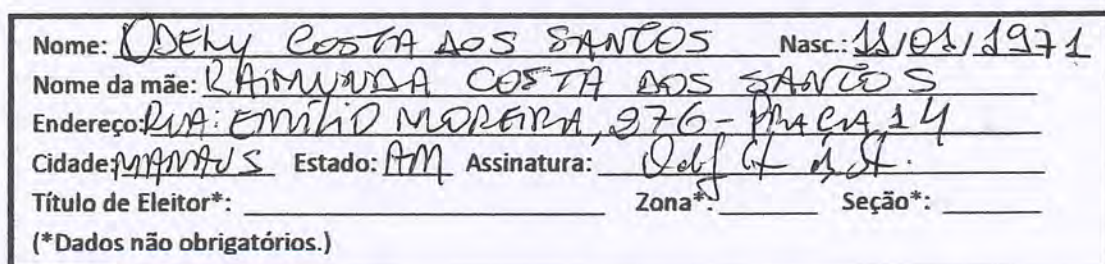 Nome: ODELY COSTA DOS SANTOS Nasc.: 11/01/1971
Nome da mãe: RAIMUNDA COSTA DOS SANTOS
Endereço: RUA: EMÍLIO MOREIRA, 276 - PRAÇA 14
Cidade: MANAUS Estado: AM Assinatura:
Título de Eleitor*: Zona*: Seção*:
(*Dados não obrigatórios.)